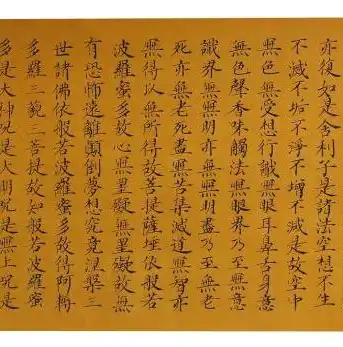 亦復如是舍利子是諸法空想不生
不滅不垢不淨不增不減是故空中
無色無受想行識無眼耳鼻舌身意
無色聲香味觸法無眼界乃至無意
識界無無明亦無無明盡乃至無老
死亦無老死盡無苦集滅道無智亦
無得以無所得故菩提薩埵依般若
波羅蜜多故心無罣礙無罣礙故無
有恐怖遠離顛倒夢想究竟涅槃三
世諸佛依般若波羅蜜多故得阿耨
多羅三藐三菩提故知般若波羅蜜
多是大神咒是大明咒是無上咒是